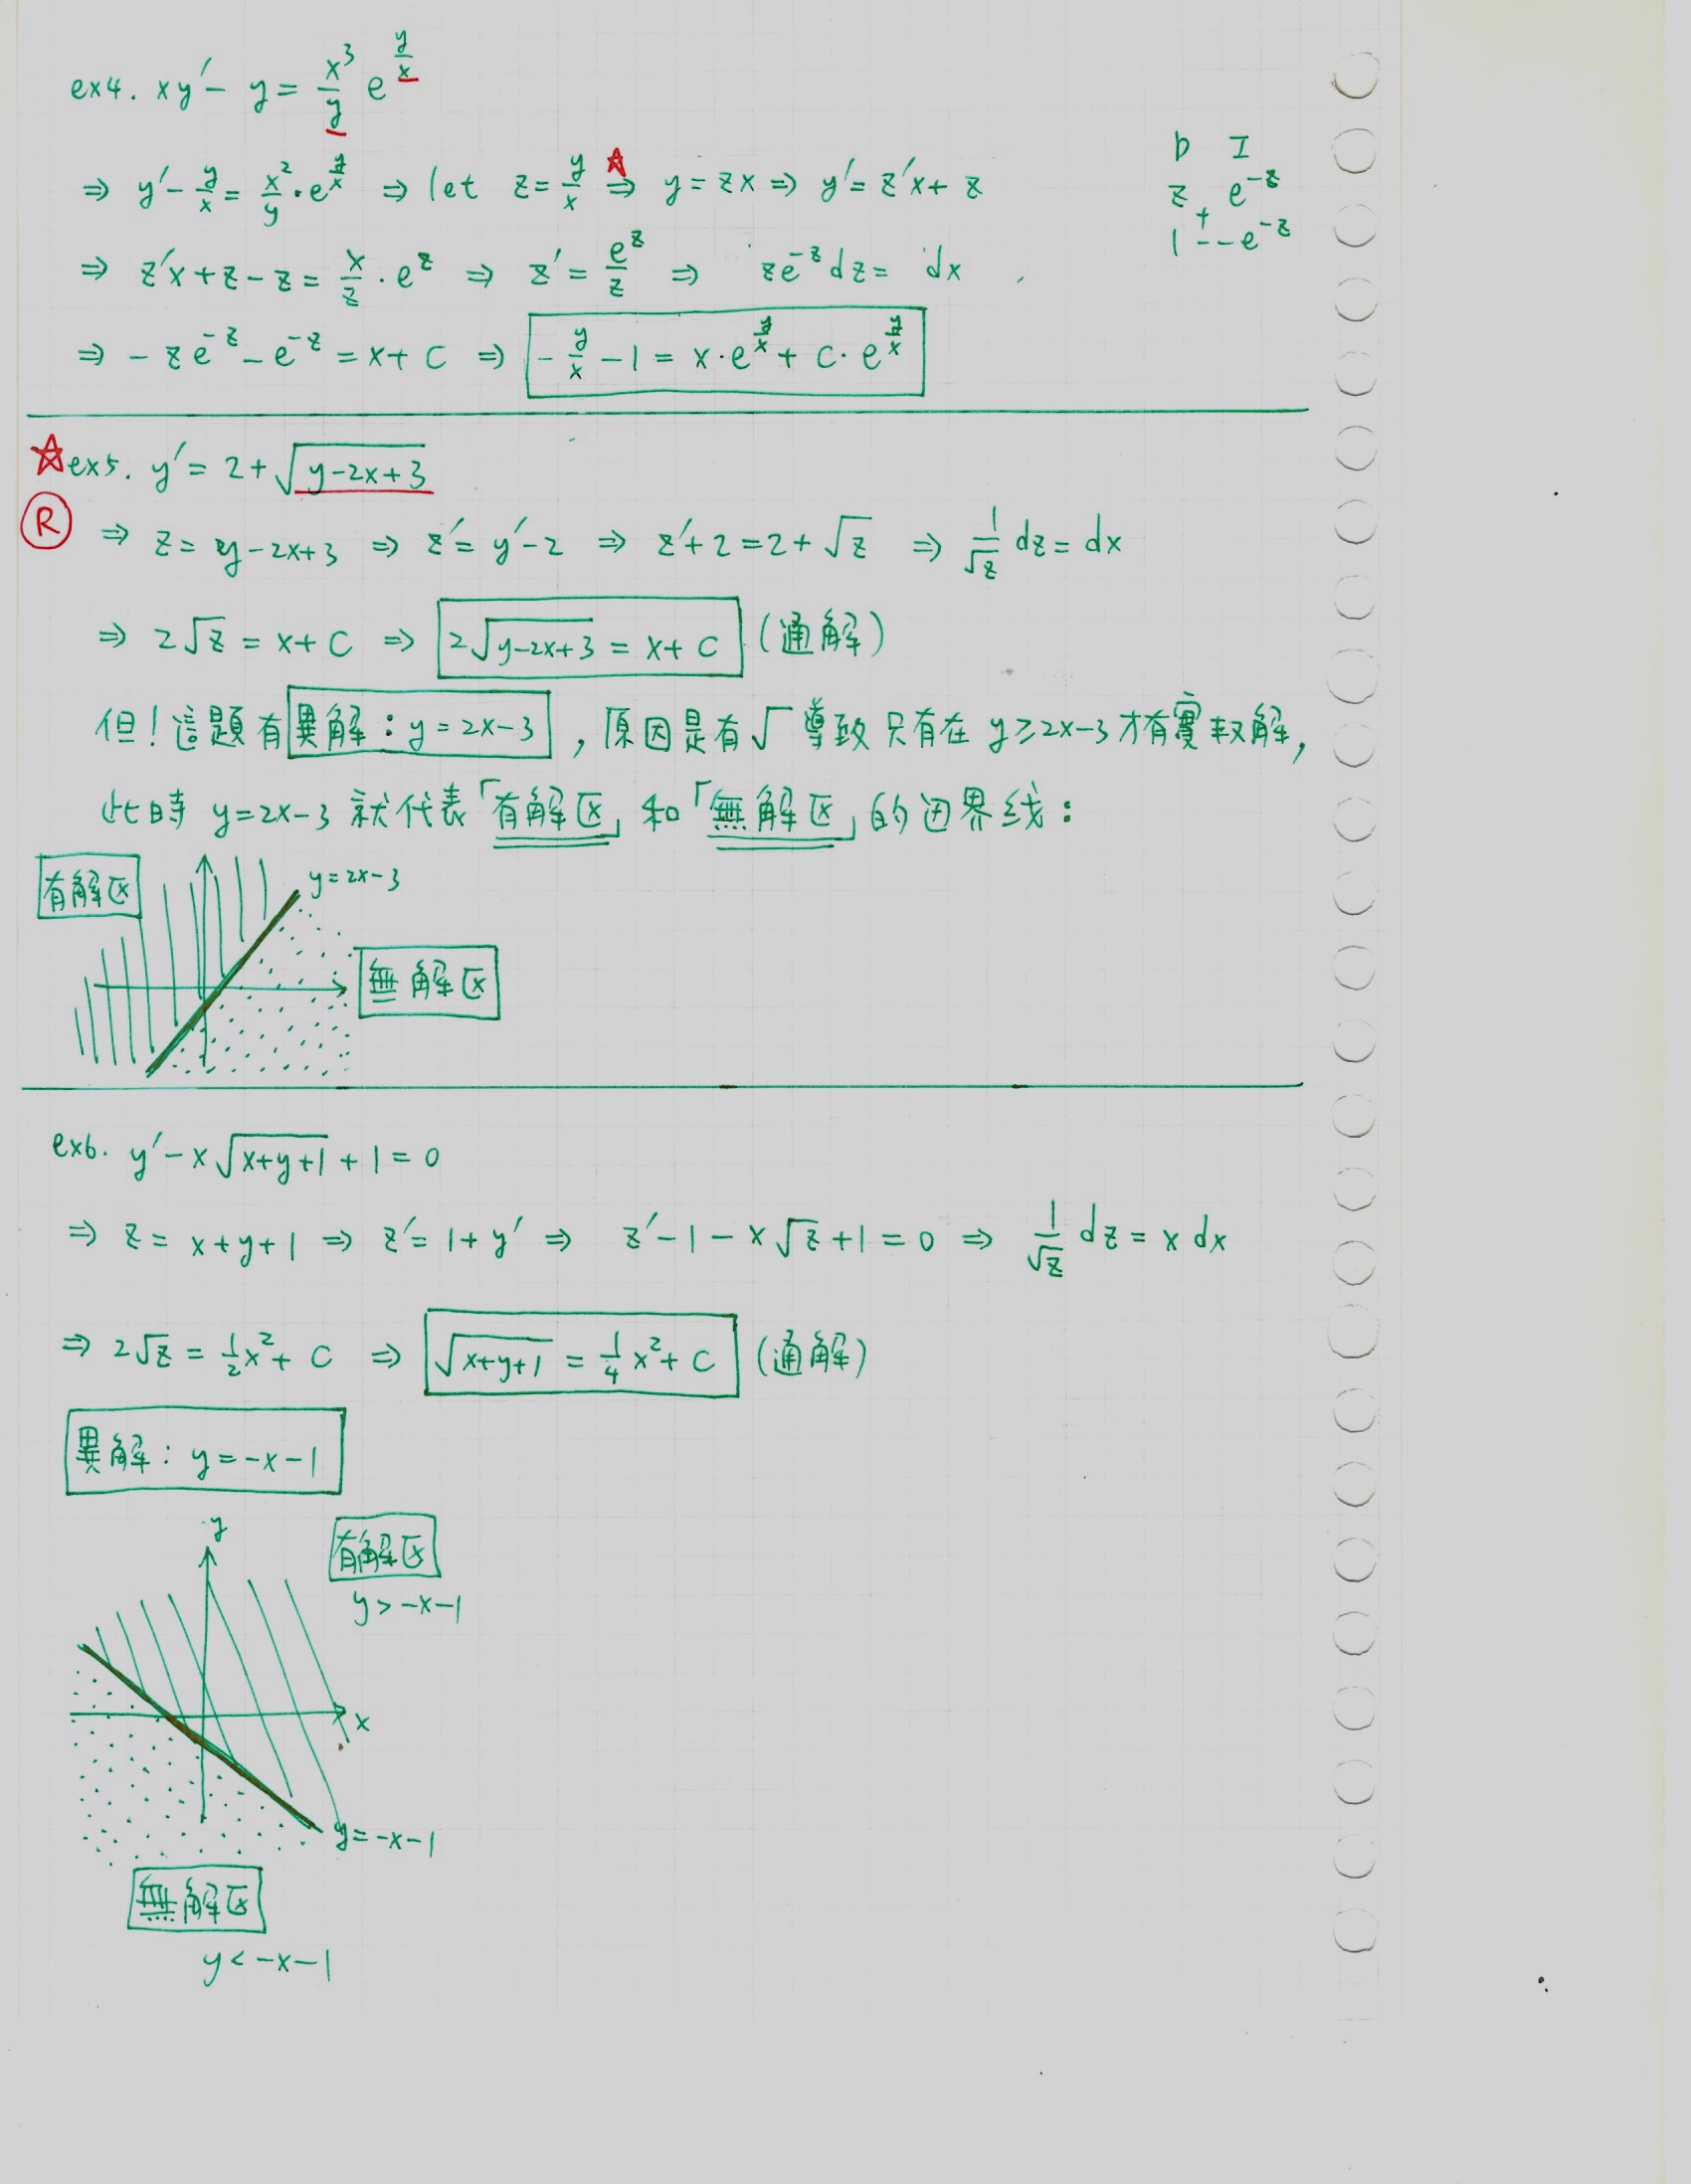 ex4. xy′ - y = x³/y e^(y/x)
D I
⇒ y′ - y/x = x²/y · e^(y/x) ⇒ let z = y/x ☆⇒ y = zx ⇒ y′ = z′x + z
z e^(-z)
+
1 - -e^(-z)
⇒ z′x + z - z = x/z · e^z ⇒ z′ = e^z/z ⇒ ze^(-z) dz = dx
⇒ - ze^(-z) - e^(-z) = x + C ⇒ -y/x - 1 = x·e^(y/x) + C·e^(y/x)
☆ ex5. y′ = 2 + √(y-2x+3)
Ⓡ ⇒ z = y-2x+3 ⇒ z′ = y′-2 ⇒ z′+2 = 2 + √z ⇒ 1/√z dz = dx
⇒ 2√z = x + C ⇒ 2√(y-2x+3) = x + C (通解)
但！這題有異解：y = 2x-3，原因是有√導致只有在 y≥2x-3 才有實数解，
此時 y=2x-3 就代表「有解区」和「無解区」的边界线：
有解区
y=2x-3
無解区
ex6. y′ - x√(x+y+1) + 1 = 0
⇒ z = x+y+1 ⇒ z′ = 1+y′ ⇒ z′-1-x√z+1 = 0 ⇒ 1/√z dz = x dx
⇒ 2√z = 1/2 x² + C ⇒ √(x+y+1) = 1/4 x² + C (通解)
異解：y = -x-1
y
有解区
y > -x-1
x
y = -x-1
無解区
y < -x-1